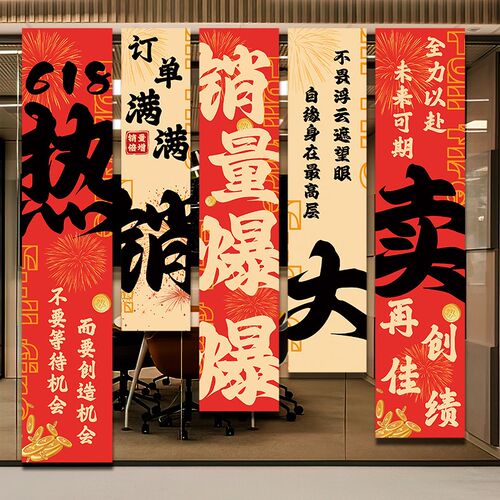 618
热
不要等待机会
而要创造机会
订单
满满
销量
倍增
销
销量爆爆
不畏浮云遮望眼
自缘身在最高层
大
全力以赴
未来可期
卖
再创
佳绩